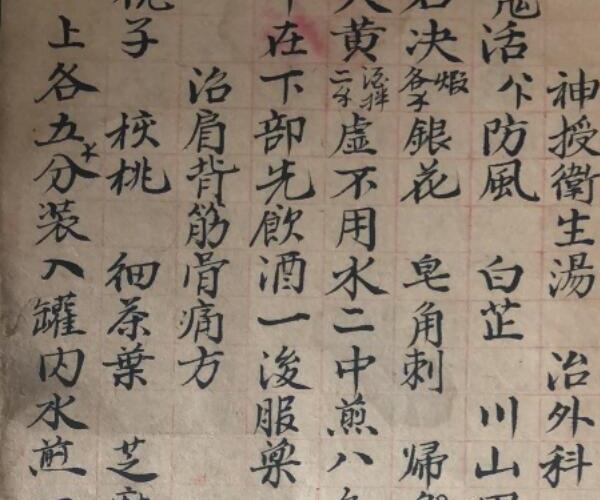 神授衛生湯 治外科
活 防風 白芷 川山
石决 煅各 銀花 皂角刺 帰
大黄 酒拌二 虛不用水二中煎八
在下部先飲酒一浚服藥
治肩背筋骨痛方
子 核桃 細茶葉 芝
上各五分装入罐内水煎